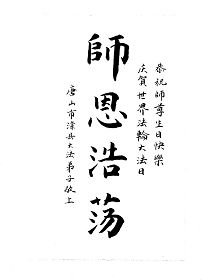 恭祝師尊生日快樂
庆賀世界法輪大法日
師恩浩荡
唐山市滦县大法弟子敬上